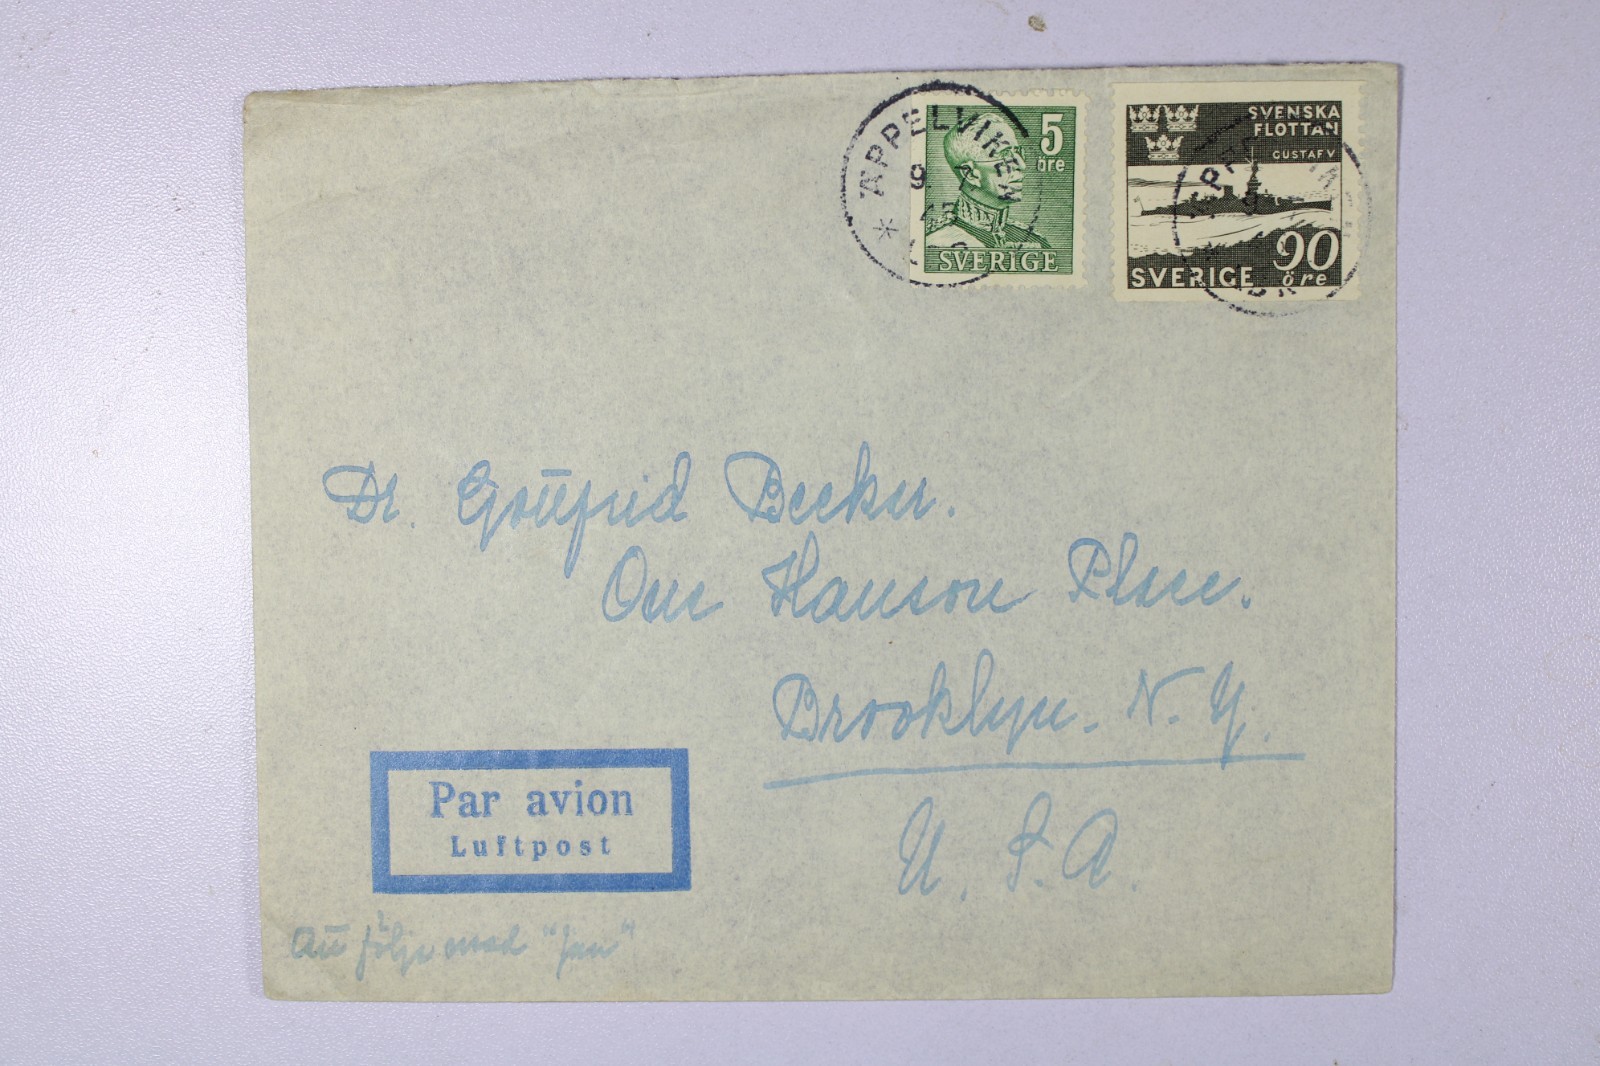 ÄPPELVIKEN
9
5
öre
SVERIGE
SVENSKA
FLOTTAN
GUSTAF V
90
SVERIGE öre
Dr. Gottfrid Becker.
One Hanson Place.
Brooklyn. N. Y.
U. S. A.
Par avion
Luftpost
Att följa med